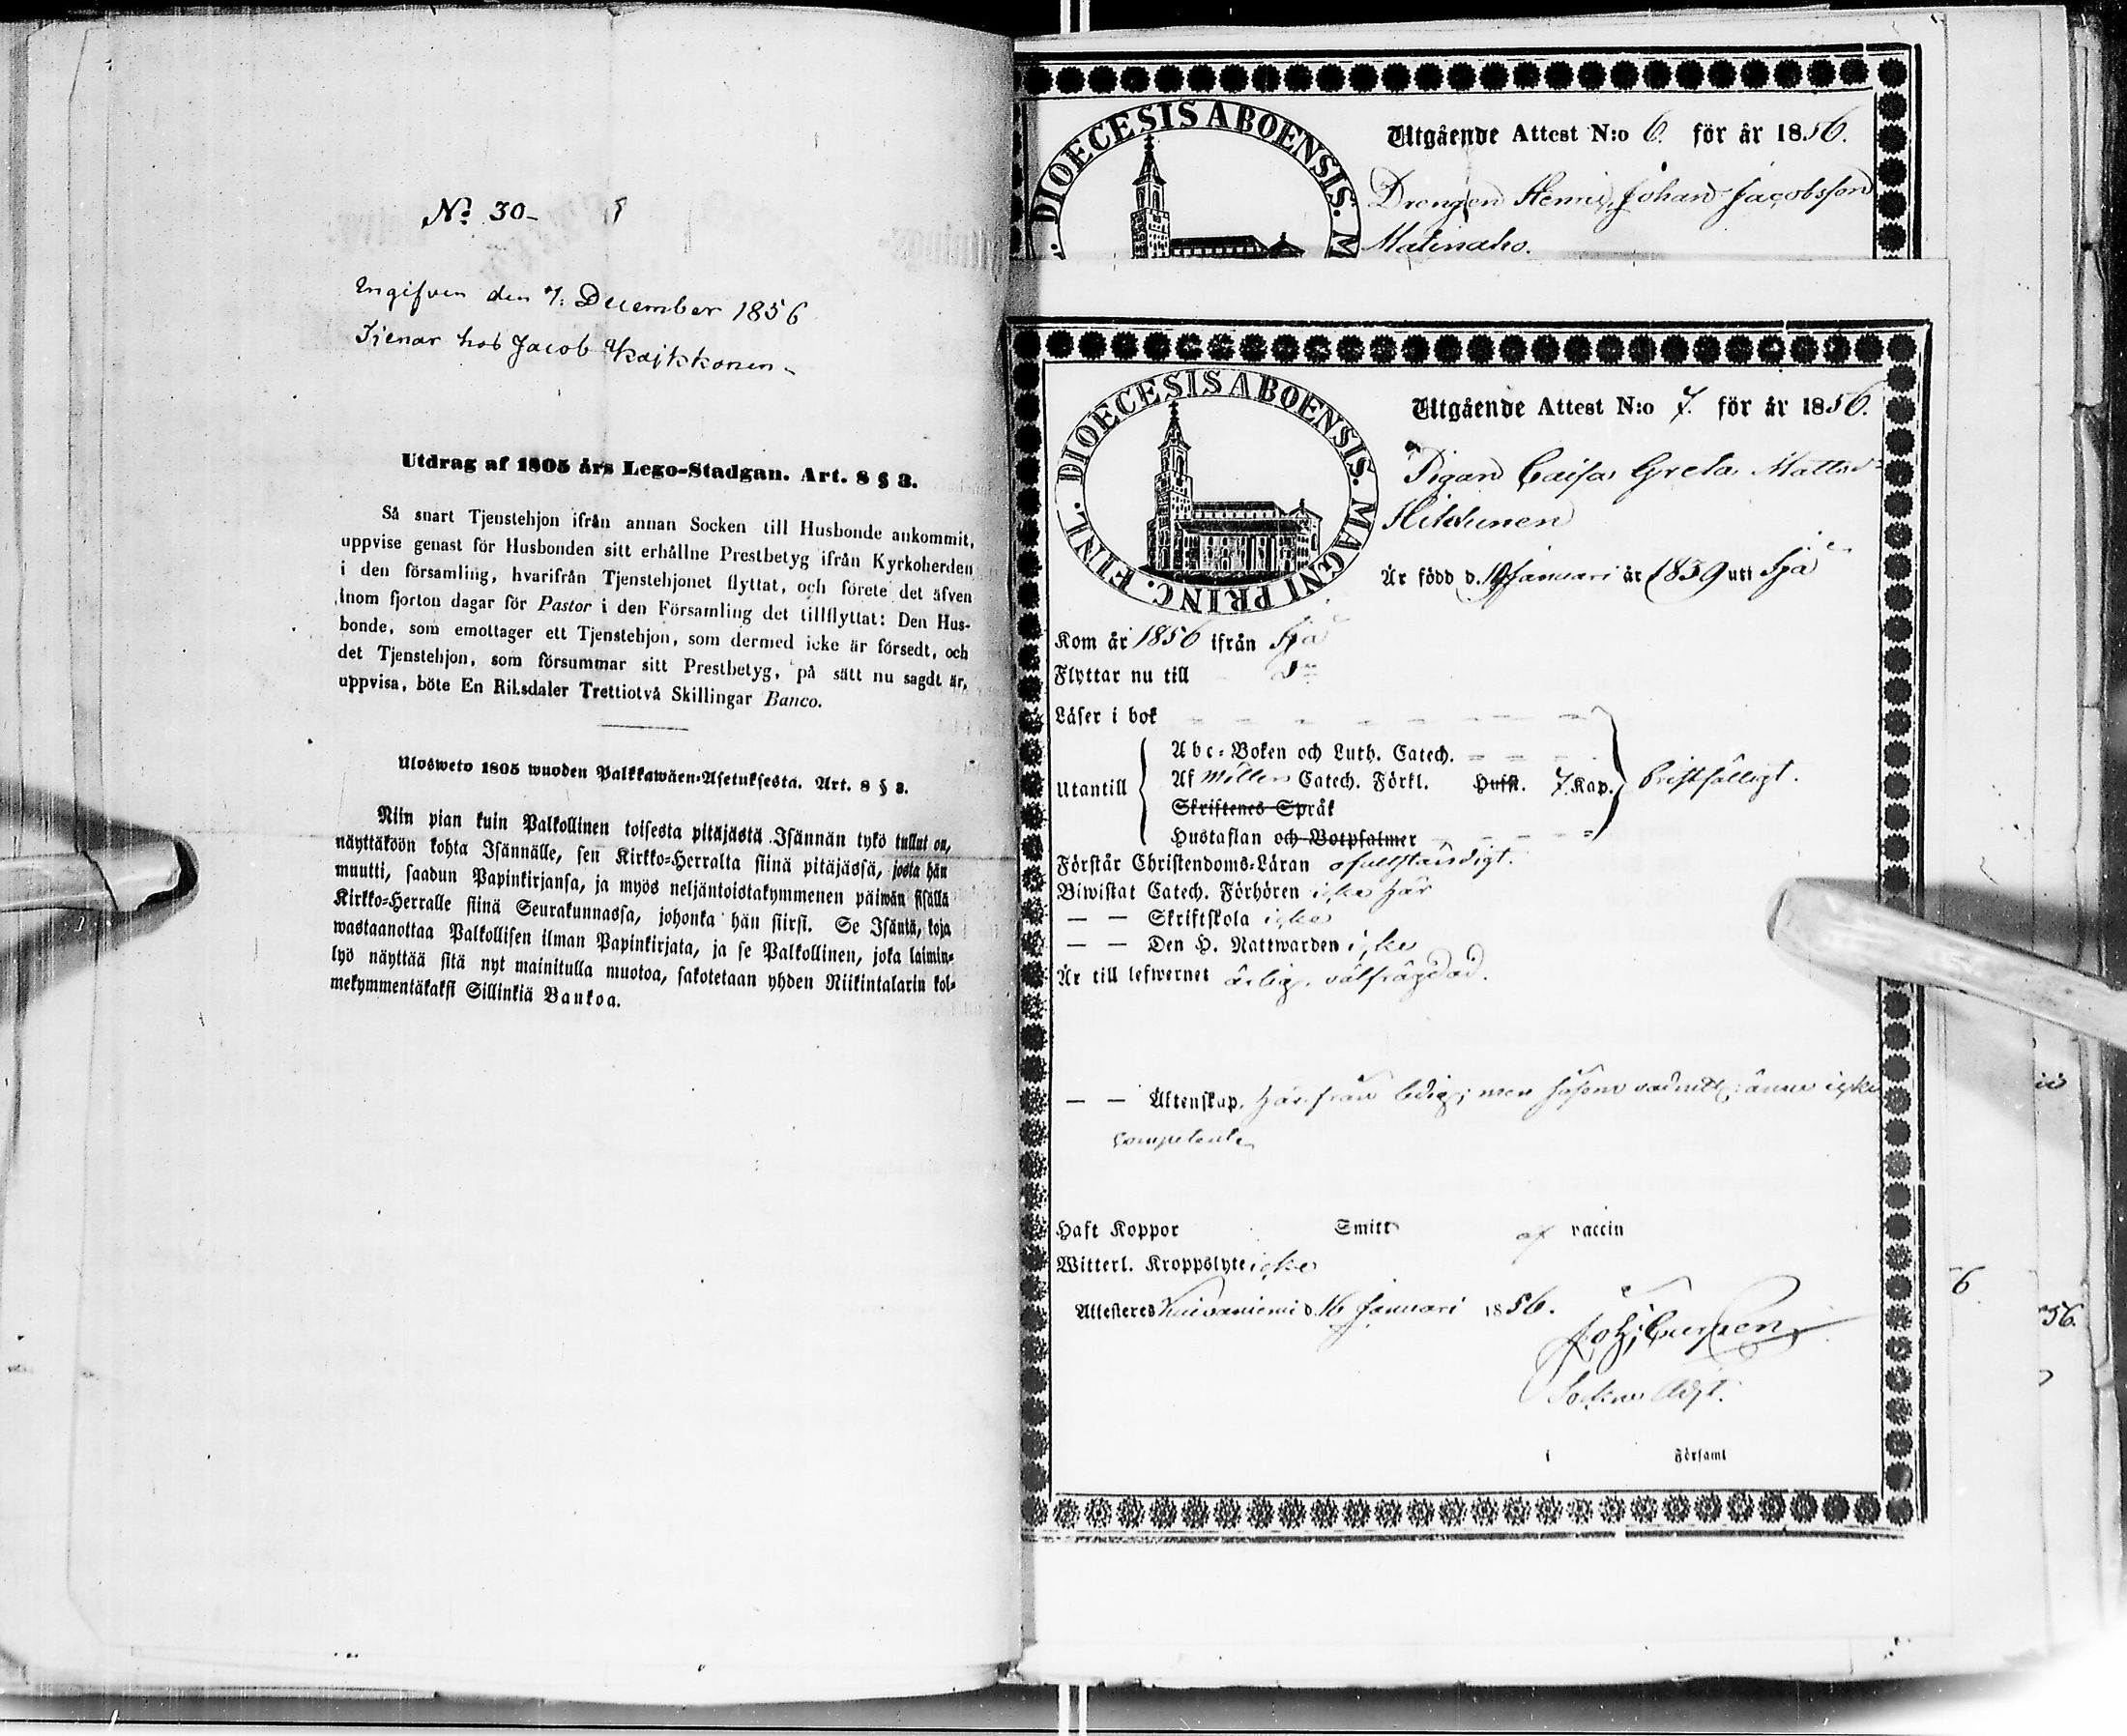 No 30-
Ingifven den 7. December 1856
Tjenar hos Jacob Kaikkonen-
Utdrag af 1805 års Lego-Stadgan. Art. 8 § 3.
Så snart Tjenstehjon ifrån annan Socken till Husbonde ankommit,
uppvise genast för Husbonden sitt erhållne Prestbetyg ifrån Kyrkoherden
i den församling, hvarifrån Tjenstehjonet flyttat, och förete det äfven
inom fjorton dagar för Pastor i den Församling det tillflyttat: Den Hus-
bonde, som emottager ett Tjenstehjon, som dermed icke är försedt, och
det Tjenstehjon, som försummar sitt Prestbetyg, på sätt nu sagdt är,
uppvisa, böte En Riksdaler Trettiotvå Skillingar Banco.
Ulosweto 1805 wuoden Palkkawäen-Asetuksesta. Art. 8 § 3.
Niin pian kuin Palkollinen toisesta pitäjästä Isännän tykö tullut on,
näyttäköön kohta Isännälle, sen Kirkko-Herralta siinä pitäjässä, josta hän
muutti, saadun Papinkirjansa, ja myös neljäntoistakymmenen päiwän sisällä
Kirkko-Herralle siinä Seurakunnassa, johonka hän siirsi. Se Isäntä, koja
wastaanottaa Palkollisen ilman Papinkirjata, ja se Palkollinen, joka laimin-
lyö näyttää sitä nyt mainitulla muotoa, sakotetaan yhden Riikintalarin kol-
mekymmentäkaksi Sillinkiä Bankoa.
DIOECESIS ABOENSIS. M
Utgående Attest N:o 6. för år 1856.
Drengen Henric Johan Jacobsson
Matinaho.
DIOECESIS ABOENSIS. MAGNI PRINC. FINL.
Utgående Attest N:o 7. för år 1856.
Pigan Caisa Greta Mattsdr
Hildunen
Är född d. 19 Januari år 1839 uti Ijå
Kom år 1856 ifrån Ijå
Flyttar nu till
Läser i bok
Abc-Boken och Luth. Catech.
Utantill
Af Möllers Catech. Förkl. Hufst. 7. Kap. bristfälligt.
Skriftenes Språk
Hustaflan och Botpsalmer
Förstår Christendoms-Läran ofullständigt.
Biwistat Catech. Förhören icke här
— — Skriftskola icke
— — Den H. Nattwarden icke
Är till lefwernet ärlig, välfrägdad.
— — Äktenskap. härifrån ledig; men såsom ännu icke
competente
Haft Koppor Smitt af vaccin
Witterl. Kroppslyte icke
Attesteras Kuivaniemi d. 16 Januari 1856.
Sockne Adjt.
i Församl
6
56.